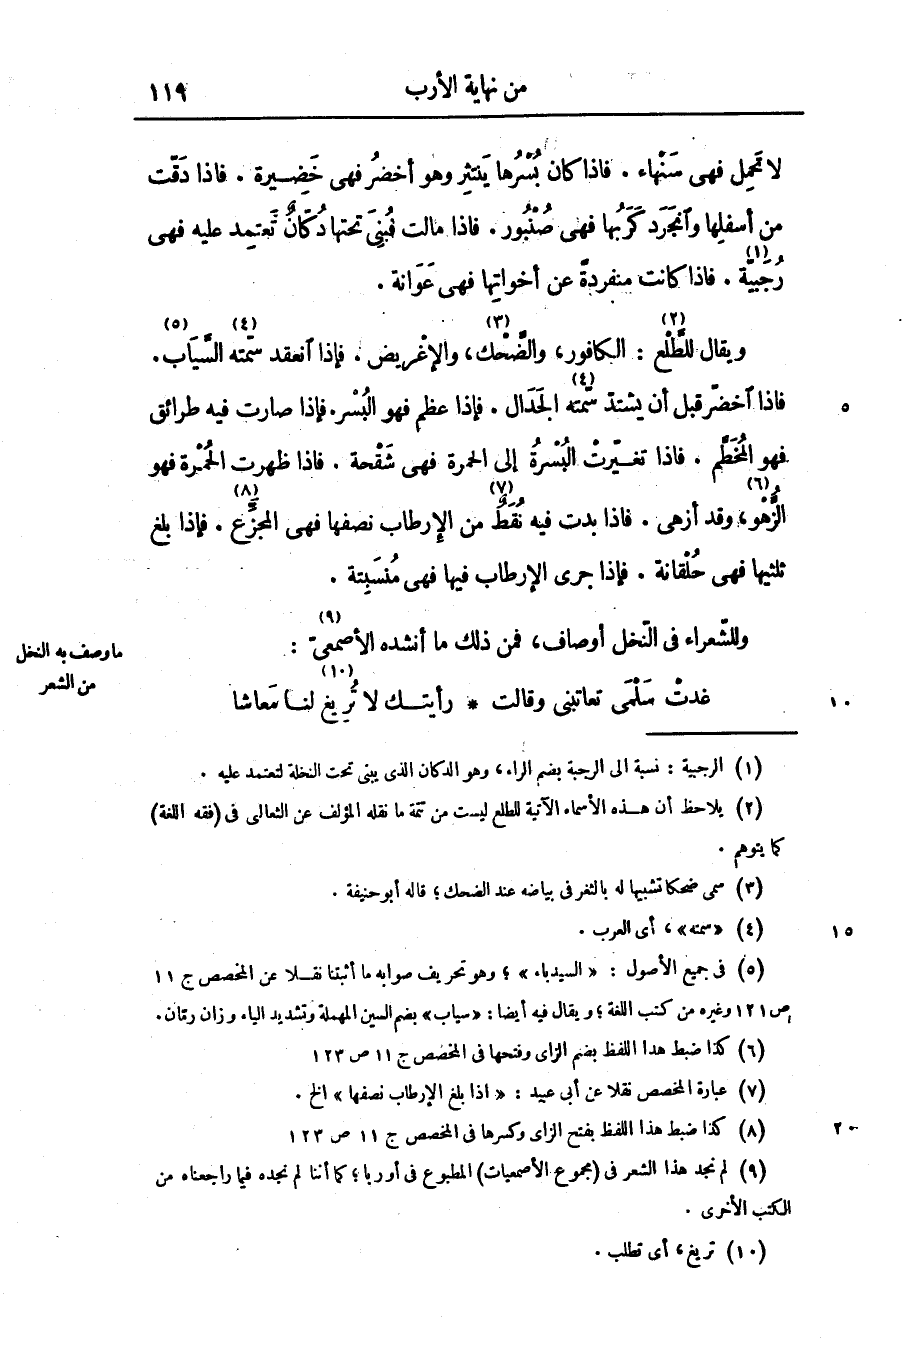 من نهاية الأرب ١١٩
لا تَحمِل فهى سَنْهاء . فاذا كان بُسْرُها يَنتثِر وهو أخضرُ فهى خَضِيرة . فاذا دَقّت
من أسفلِها وٱنجَرَد كَرَبُها فهى صُنْبُور . فاذا مالت فبُنِىَ تحتها دُكّانٌ تَعتمِد عليه فهى
رُجَبِيّة (١) . فاذا كانت منفردةً عن أخواتِها فهى عَوَانة .
ويقال للطَّلْع (٢) : الكافور، والضَّحْك (٣)، والإغْرِيض . فإذا ٱنعقد سمّته (٤) السَّيَاب (٥) .
فاذا ٱخضرّ قبل أن يشتدّ سمّته (٤) الجَدَال . فإذا عظم فهو البُسْر . فإذا صارت فيه طرائق
فهو المُخَطَّم . فاذا تغيّرتْ البُسْرةُ إلى الحمرة فهى شَقْحة . فاذا ظهرت الحُمْرة فهو
الزُّهْو (٦)، وقد أزهى . فاذا بدت فيه نُقَطٌ (٧) من الإرطاب نصفها فهى المجزَّع (٨) . فإذا بلغ
ثلثيها فهى حُلْقانة . فإذا جرى الإرطاب فيها فهى مُنسَبِتة .
وللشّعراء فى النّخل أوصاف، فمن ذلك ما أنشده الأصمعىّ (٩) :
ما وصف به النخل
من الشعر
غدتْ سَلْمَى تعاتبنى وقالت * رأيتك لا تُرِيغ (١٠) لنا مَعاشا
٥
١٠
(١) الرجبية : نسبة الى الرجبة بضم الراء، وهو الدكان الذى يبنى تحت النخلة لتعتمد عليه .
(٢) يلاحظ أن هذه الأسماء الآتية للطلع ليست من تتمة ما نقله المؤلف عن الثعالبى فى (فقه اللغة)
كما يتوهم .
(٣) سمى ضحكا تشبيها له بالثغر فى بياضه عند الضحك؛ قاله أبو حنيفة .
(٤) «سمته»، أى العرب .
١٥
(٥) فى جميع الأصول : «السيدباء»؛ وهو تحريف صوابه ما أثبتنا نقلا عن المخصص ج ١١
ص ١٢١ وغيره من كتب اللغة؛ ويقال فيه أيضا : «سياب» بضم السين المهملة وتشديد الياء وزان رمّان.
(٦) كذا ضبط هذا اللفظ بضم الزاى وفتحها فى المخصص ج ١١ ص ١٢٣
(٧) عبارة المخصص نقلا عن أبى عبيد : «اذا بلغ الإرطاب نصفها» الخ .
(٨) كذا ضبط هذا اللفظ بفتح الزاى وكسرها فى المخصص ج ١١ ص ١٢٣
٢٠
(٩) لم نجد هذا الشعر فى (مجموع الأصمعيات) المطبوع فى أوربا؛ كما أننا لم نجده فيما راجعناه من
الكتب الأخرى .
(١٠) تريغ، أى تطلب .